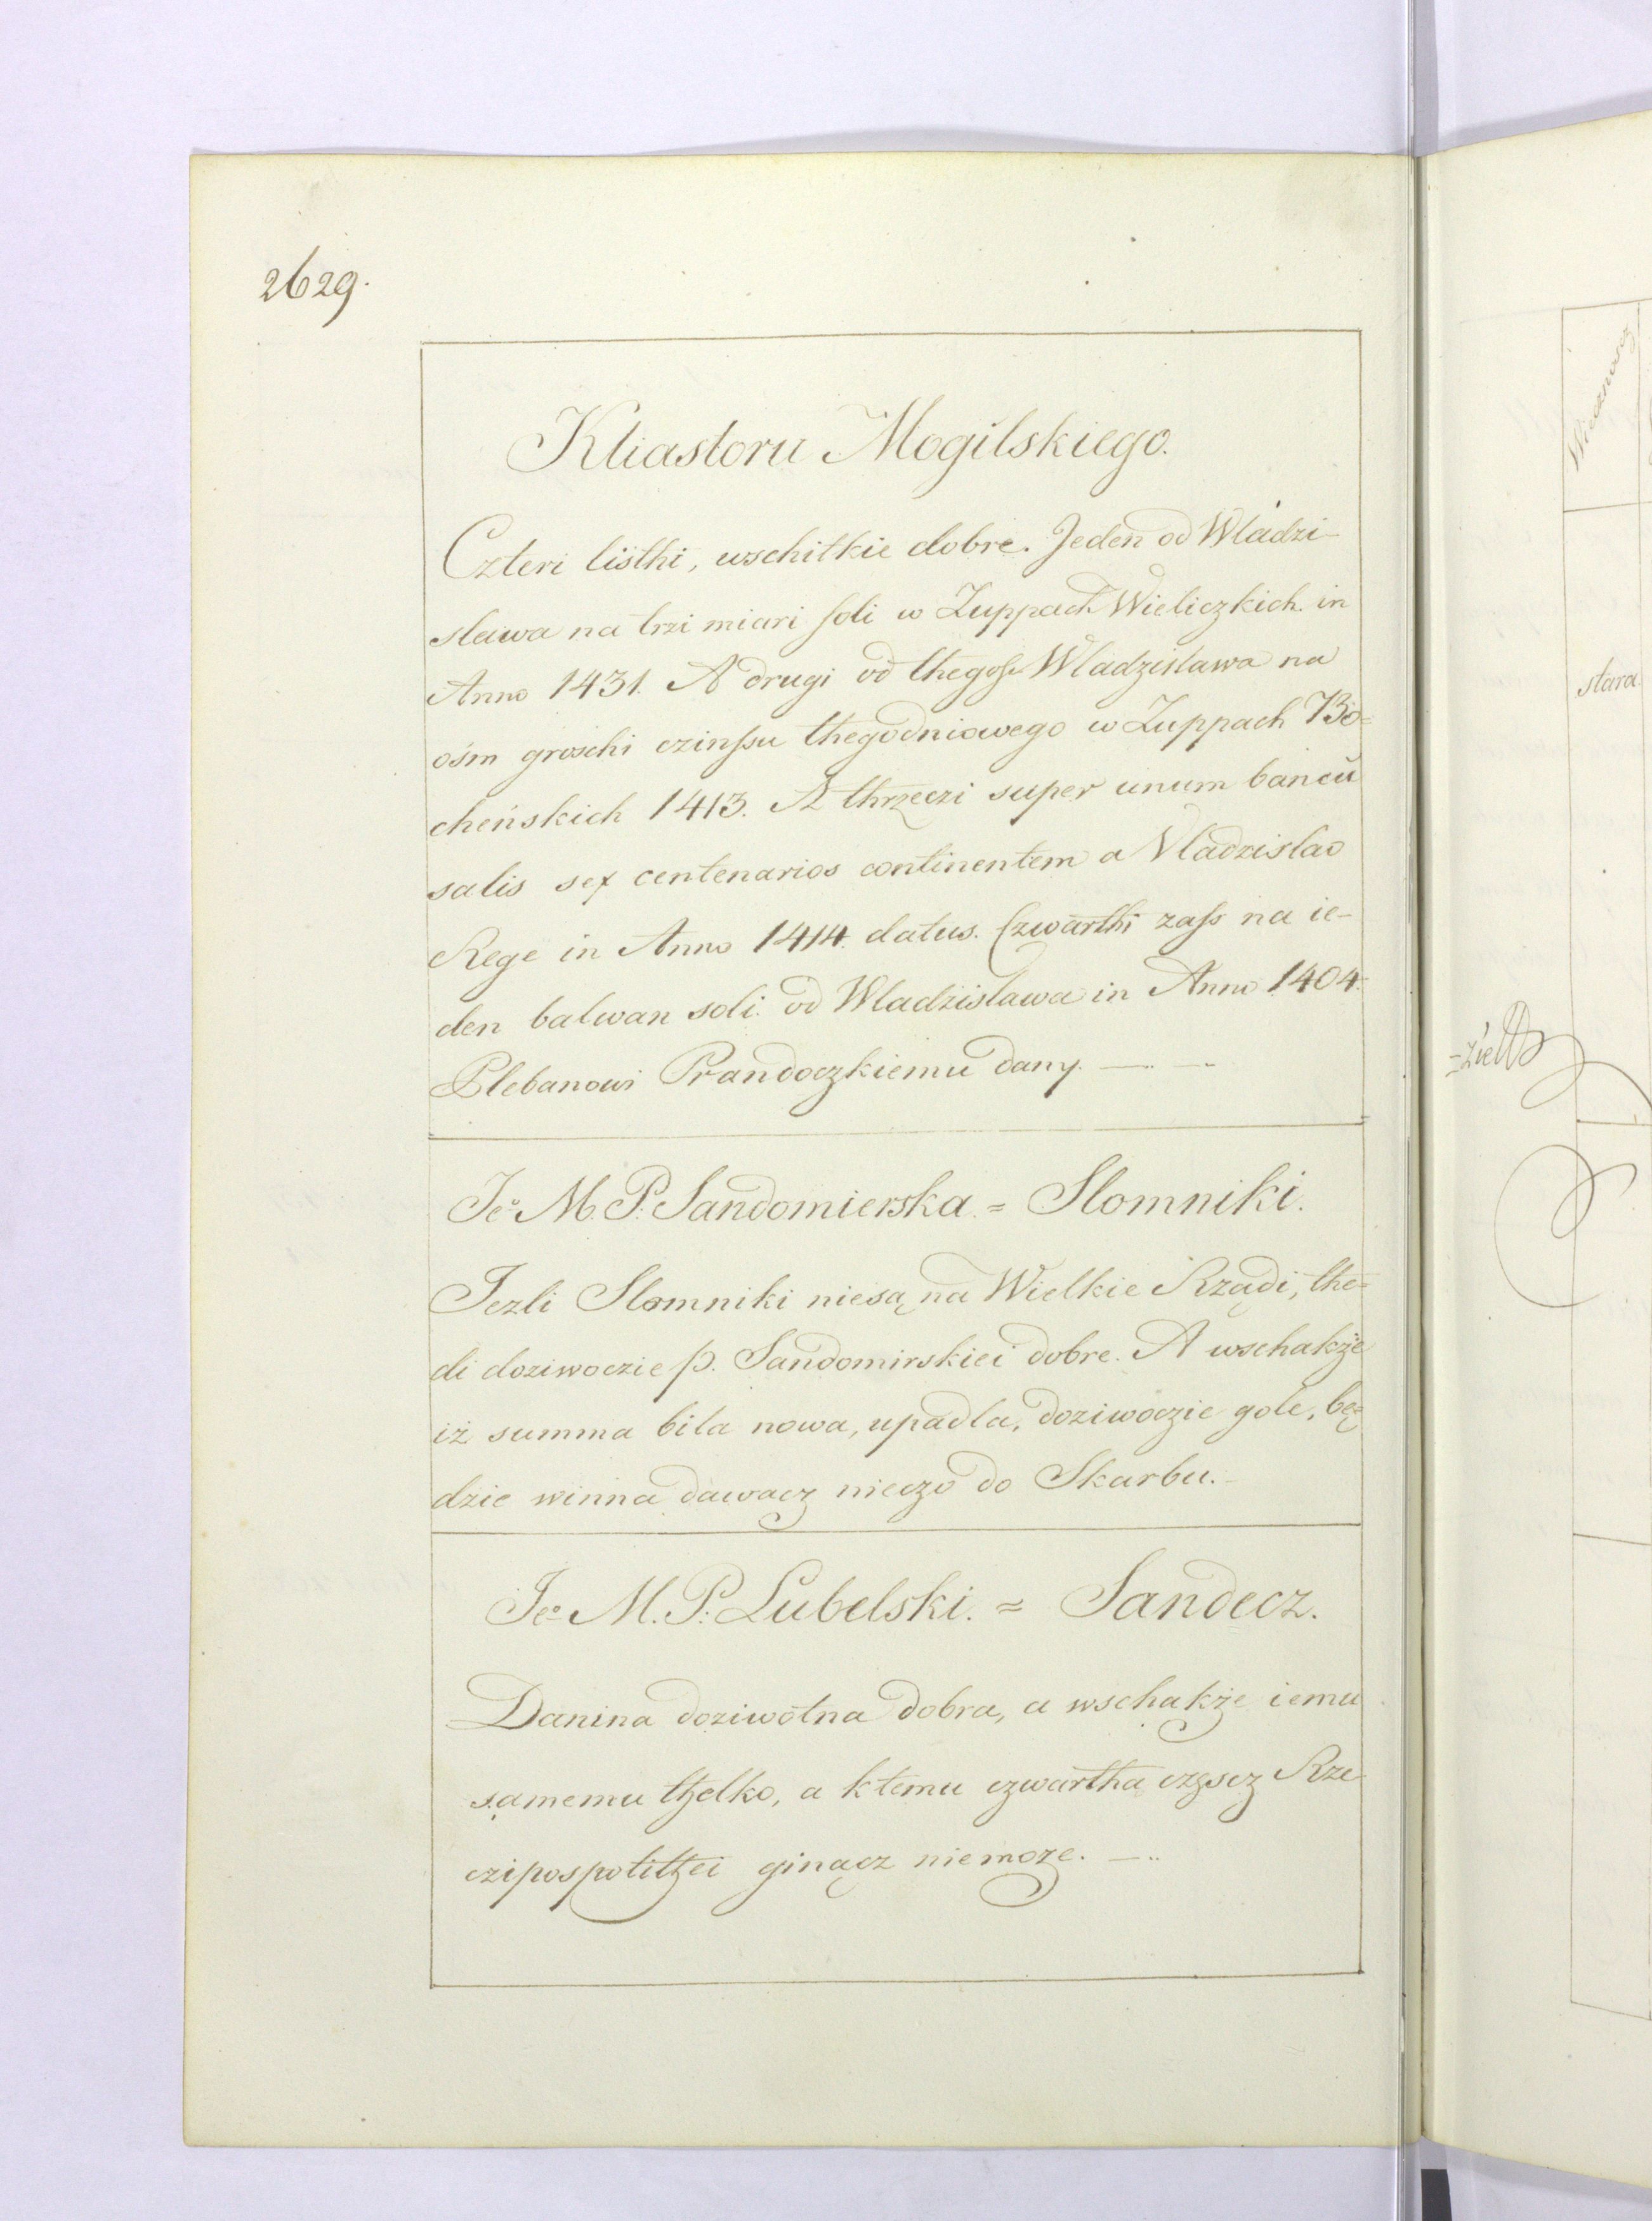 2629.
Kliastoru Mogilskiego.
Czteri listhi, wschitkie dobre. Jeden od Wladzi-
slawa na trzi miari soli w Zuppach Wieliczkich in
Anno 1431. A drugi od thegoss Wladzislawa na
ośm groschi czinssu thegodniowego w Zuppach Bo=
cheńskich 1413. A thrzeczi super unum bancŭ
salis sex centenarios continentem a Vladzislao
Rege in Anno 1414. datus. Czwarthi zass na ie-
den balwan soli. od Wladzislawa in Anno 1404.
Plebanowi Prandoczkiemu dany. — —
Jeº M. P. Sandomierska = Slomniki.
Jezli Slomniki niesą na Wielkie Rządi, the=
di doziwoczie p. Sandomirskiei dobre. A wschakże
iż summa bila nowa, upadla, doziwoczie gole, bę=
dzie winna dawacz nieczo do Skarbu.
Jeº M. P: Lubelski. = Sandecz.
Danina doziwotna dobra, a wschakże iemu
samemu thelko, a k temu czwartha częscz Rze
czipospolithei ginącz niemoze. —
Wiecznoscz
stara